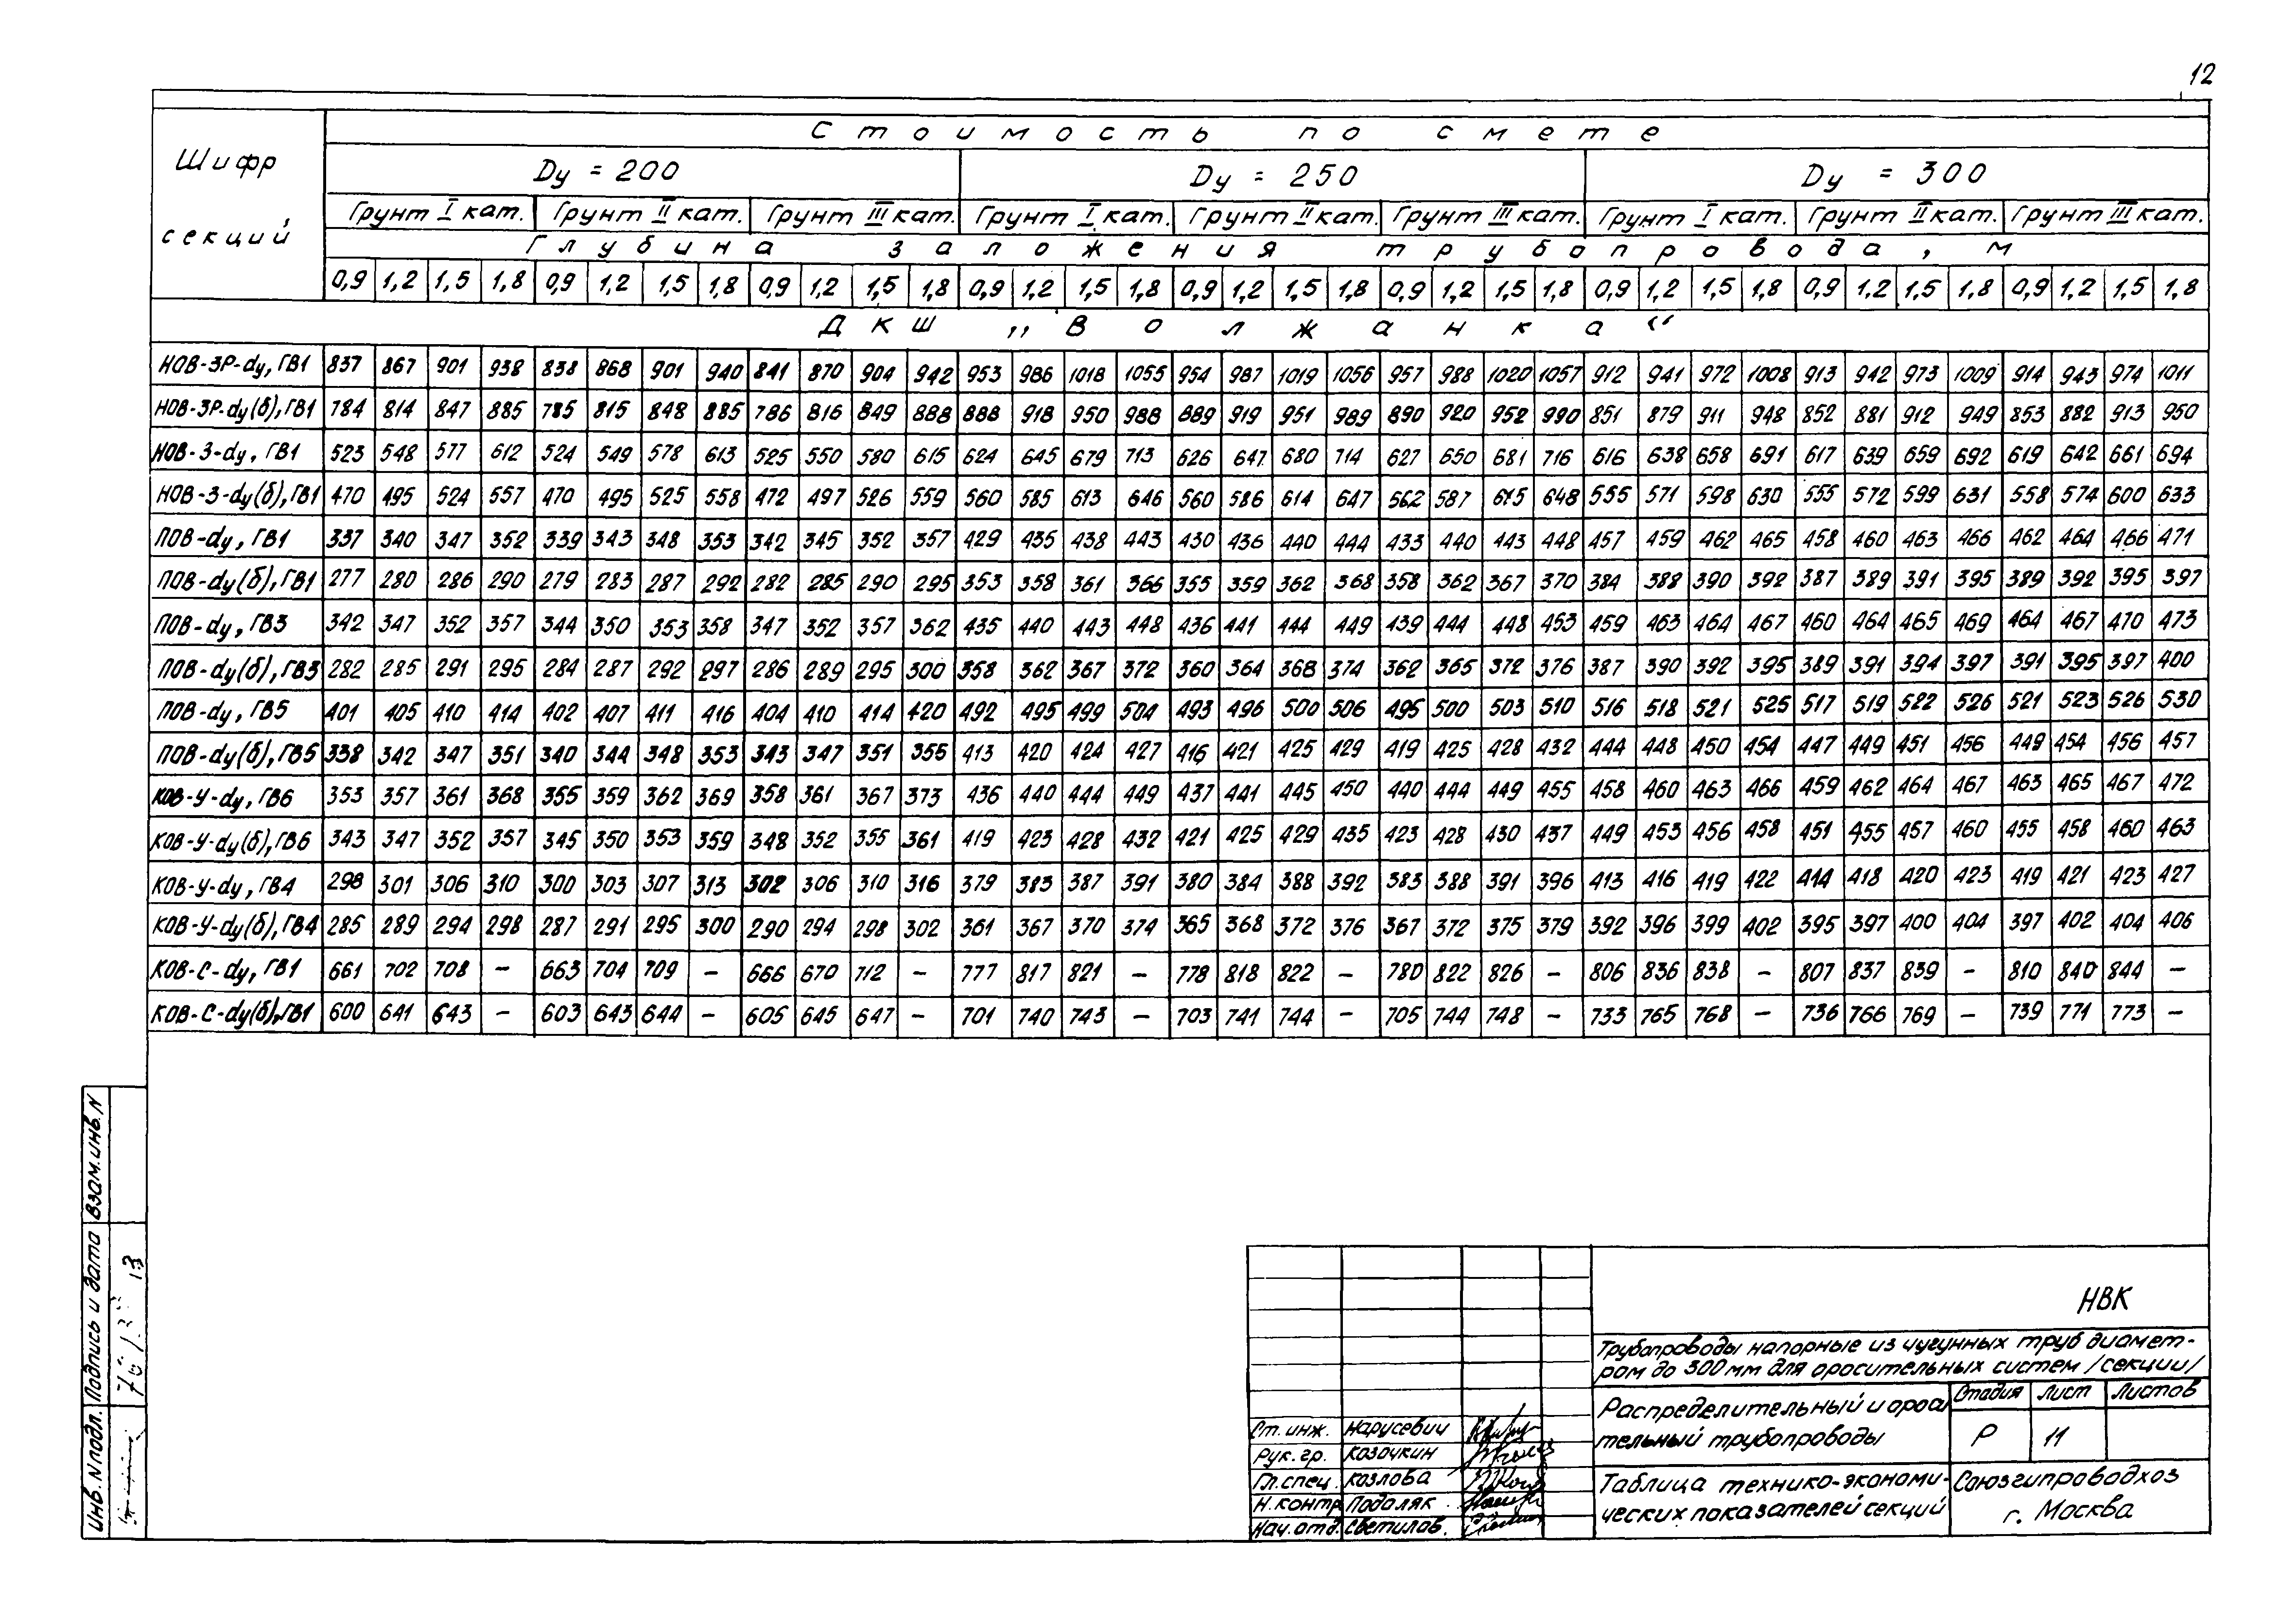 12
Шифр секций
Стоимость по смете
Dу = 200 Dу = 250 Dу = 300
Грунт I кат. Грунт II кат. Грунт III кат. Грунт I кат. Грунт II кат. Грунт III кат. Грунт I кат. Грунт II кат. Грунт III кат.
Глубина заложения трубопровода, м
0,9 1,2 1,5 1,8 0,9 1,2 1,5 1,8 0,9 1,2 1,5 1,8 0,9 1,2 1,5 1,8 0,9 1,2 1,5 1,8 0,9 1,2 1,5 1,8 0,9 1,2 1,5 1,8 0,9 1,2 1,5 1,8 0,9 1,2 1,5 1,8
ДКШ „Волжанка“
НОВ-3Р-dу, ГВ1 837 867 901 938 838 868 901 940 841 870 904 942 953 986 1018 1055 954 987 1019 1056 957 988 1020 1057 912 941 972 1008 913 942 973 1009 914 943 974 1011
НОВ-3Р-dу(б), ГВ1 784 814 847 885 785 815 848 885 786 816 849 888 888 918 950 988 889 919 951 989 890 920 952 990 851 879 911 948 852 881 912 949 853 882 913 950
НОВ-3-dу, ГВ1 523 548 577 612 524 549 578 613 525 550 580 615 624 645 679 713 626 647 680 714 627 650 681 716 616 638 658 691 617 639 659 692 619 642 661 694
НОВ-3-dу(б), ГВ1 470 495 524 557 470 495 525 558 472 497 526 559 560 585 613 646 560 586 614 647 562 587 615 648 555 571 598 630 555 572 599 631 558 574 600 633
ПОВ-dу, ГВ1 337 340 347 352 339 343 348 353 342 345 352 357 429 435 438 443 430 436 440 444 433 440 443 448 457 459 462 465 458 460 463 466 462 464 466 471
ПОВ-dу(б), ГВ1 277 280 286 290 279 283 287 292 282 285 290 295 353 358 361 366 355 359 362 368 358 362 367 370 384 388 390 392 387 389 391 395 389 392 395 397
ПОВ-dу, ГВ3 342 347 352 357 344 350 353 358 347 352 357 362 435 440 443 448 436 441 444 449 439 444 448 453 459 463 464 467 460 464 465 469 464 467 470 473
ПОВ-dу(б), ГВ3 282 285 291 295 284 287 292 297 286 289 295 300 358 362 367 372 360 364 368 374 362 365 372 376 387 390 392 395 389 391 394 397 391 395 397 400
ПОВ-dу, ГВ5 401 405 410 414 402 407 411 416 404 410 414 420 492 495 499 504 493 496 500 506 495 500 503 510 516 518 521 525 517 519 522 526 521 523 526 530
ПОВ-dу(б), ГВ5 338 342 347 351 340 344 348 353 343 347 351 355 413 420 424 427 416 421 425 429 419 425 428 432 444 448 450 454 447 449 451 456 449 454 456 457
КОВ-У-dу, ГВ6 353 357 361 368 355 359 362 369 358 361 367 373 436 440 444 449 437 441 445 450 440 444 449 455 458 460 463 466 459 462 464 467 463 465 467 472
КОВ-У-dу(б), ГВ6 343 347 352 357 345 350 353 359 348 352 355 361 419 423 428 432 421 425 429 435 423 428 430 437 449 453 456 458 451 455 457 460 455 458 460 463
КОВ-У-dу, ГВ4 298 301 306 310 300 303 307 313 302 306 310 316 379 383 387 391 380 384 388 392 383 388 391 396 413 416 419 422 414 418 420 423 419 421 423 427
КОВ-У-dу(б), ГВ4 285 289 294 298 287 291 295 300 290 294 298 302 361 367 370 374 365 368 372 376 367 372 375 379 392 396 399 402 395 397 400 404 397 402 404 406
КОВ-С-dу, ГВ1 661 702 708 – 663 704 709 – 666 670 712 – 777 817 821 – 778 818 822 – 780 822 826 – 806 836 838 – 807 837 839 – 810 840 844 –
КОВ-С-dу(б), ГВ1 600 641 643 – 603 643 644 – 605 645 647 – 701 740 743 – 703 741 744 – 705 744 748 – 733 765 768 – 736 766 769 – 739 771 773 –
Инв. N подл. Подпись и дата Взам. инв. N
НВК
Трубопроводы напорные из чугунных труб диамет-
ром до 300мм для оросительных систем /секции/
Распределительный и ороси
тельный трубопроводы
Стадия Лист Листов
Р 11
Ст. инж. Нарусевич
Рук. гр. Козочкин
Гл. спец. Козлова
Н. контр Подаляк
Нач. отд. Светилов.
Таблица технико-экономи-
ческих показателей секций
Союзгипроводхоз
г. Москва